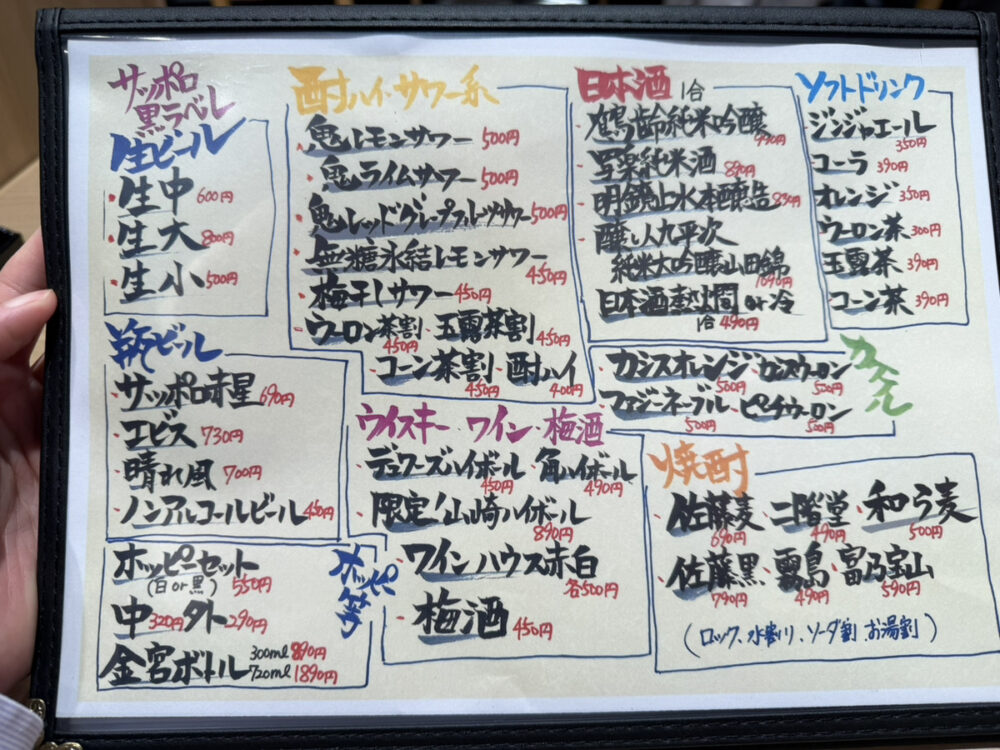 サッポロ
黒ラベル
生ビール
・生中 600円
・生大 800円
・生小 500円
瓶ビール
・サッポロ赤星 690円
・エビス 730円
・晴れ風 700円
・ノンアルコールビール 450円
ホッピー等
ホッピーセット
(白or黒) 550円
中 320円 外 290円
金宮ボトル 300ml 890円
720ml 1890円
酎ハイ・サワー系
・鬼レモンサワー 500円
・鬼ライムサワー 500円
・鬼レッドグレープフルーツサワー 500円
・無糖氷結レモンサワー 450円
・梅干しサワー 450円
・ウーロン茶割 450円 ・玉露茶割 450円
・コーン茶割 450円 ・酎ハイ 400円
ウイスキー ワイン・梅酒
・デュワーズハイボール 450円 ・角ハイボール 490円
・限定!山崎ハイボール 890円
・ワイン ハウス赤白 各500円
・梅酒 450円
日本酒 1合
・鶴齢純米吟醸 990円
・写楽純米酒 890円
・明鏡止水本醸造 830円
・醸し人九平次
純米大吟醸山田錦 1090円
・日本酒熱燗or冷
1合 490円
ソフトドリンク
・ジンジャエール 350円
・コーラ 390円
・オレンジ 350円
・ウーロン茶 300円
・玉露茶 390円
・コーン茶 390円
カクテル
・カシスオレンジ 500円 ・カシスウーロン 500円
・ファジーネーブル 500円 ・ピーチウーロン 500円
焼酎
・佐藤麦 690円 ・二階堂 490円 ・和ら麦 500円
・佐藤黒 790円 ・霧島 490円 ・富乃宝山 590円
(ロック、水割り、ソーダ割、お湯割)